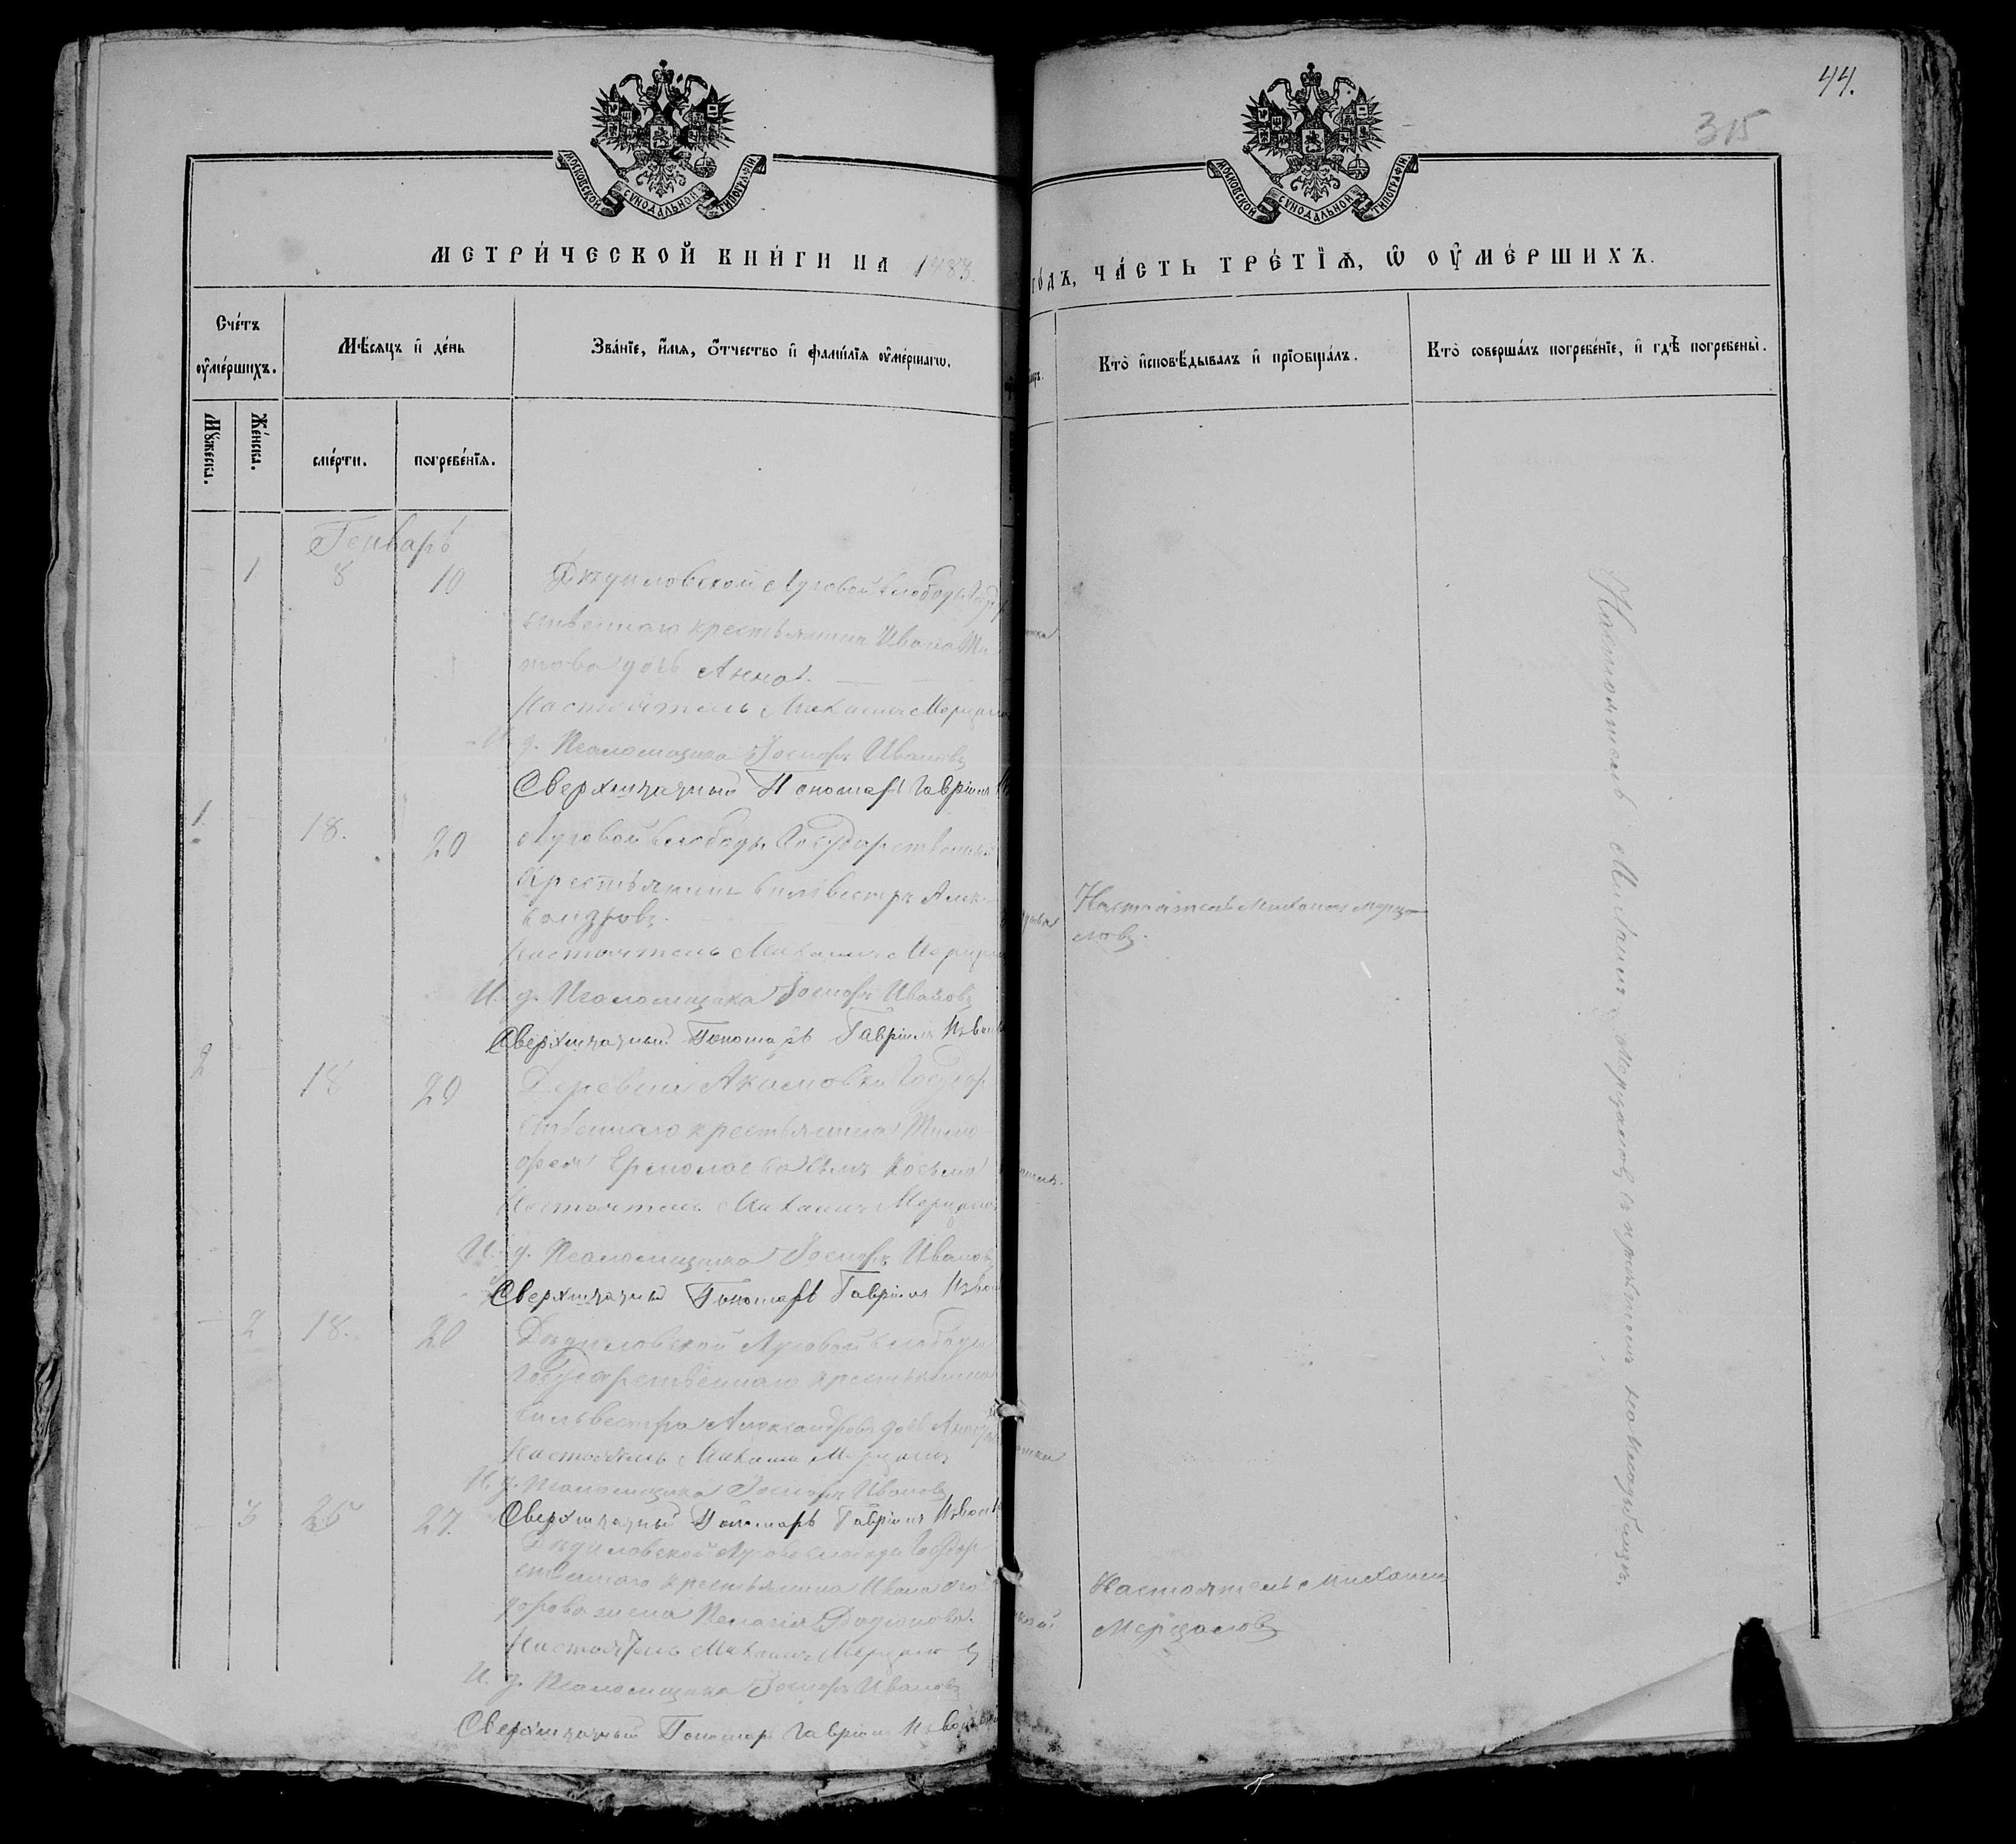 44.
315
МОСКОВСКОЙ СѴНОДАЛЬНОЙ ТИПОГРАФІИ
МОСКОВСКОЙ СѴНОДАЛЬНОЙ ТИПОГРАФІИ
МЕТРИ́ЧЕСКОЙ КНИ́ГИ НА 1883
го́дъ, ча́сть тре́тїѧ, ѡ҆ оу҆ме́ршихъ.
Сче́тъ оу҆ме́ршихъ.
Мѣ́сѧцъ и҆ де́нь
Зва́нїе, и҆́мѧ, ѻ҆́тчество и҆ фами́лїѧ оу҆ме́ршагѡ.
Кто̀ и҆сповѣ́дывалъ и҆ прїѡбща́лъ.
Кто̀ соверша́лъ погребе́нїе, и҆ гдѣ̀ погребены̀.
Мꙋ́жеска.
Же́нска.
сме́рти.
погребе́нїѧ.
Генварь
1 8 10 Дѣдиловской Луговой слободы Государ
ственнаго крестьянина Ивана Ти
това дочь Анна.
Настоятель Михаилъ Мерцалов
И. д. Псаломщика Іосифъ Ивановъ
Сверхштатный Пономарь Гавріилъ
1. 18. 20 Луговой слободы Государственный
Крестьянинъ Силвестръ Алек
сандровъ.
Настоятель Михаилъ Мерцал
И. д. Псаломщика Іосифъ Ивановъ
Сверхштатный Пономарь Гавріилъ
Настоятель Михаилъ Мерца
ловъ.
2 18 20 Деревни Акимовки Государ
ственнаго крестьянина Тимо
фея Ермолаева сынъ Косьма
Настоятель Михаилъ Мерцалов
И. д. Псаломщика Іосифъ Ивановъ
Сверхштатный Пономарь Гавріилъ
2 18. 20 Дѣдиловской Луговой слободы
Государственнаго крестьянина
Сильвестра Александрова дочь
Настоятель Михаилъ Мерцалъ
И. д. Псаломщика Іосифъ Ивановъ
Сверхштатный Пономарь Гавріилъ
3 25 27. Дѣдиловской Лугов слободы Государ
ственнаго крестьянина Ивана Ѳео
дорова жена Пелагія Родіонова.
Настоятель Михаилъ Мерцаловъ
И. д. Псаломщика Іосифъ Ивановъ
Сверхштатный Пономарь Гавріилъ
Настоятель Михаилъ
Мерцаловъ
Настоятель Михаилъ Мерцаловъ съ причтомъ на кладбищѣ.